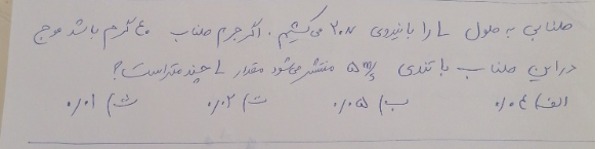 طنابی به طول L را با نیروی ۲۰N می‌کشیم. اگر جرم طناب ۴۰ گرم باشد موج
در این طناب با تندی ۵ m/s منتشر می‌شود مقدار L چند متر است؟
الف) ۰/۰۴ ب) ۰/۰۵ ت) ۰/۰۲ ث) ۰/۰۱